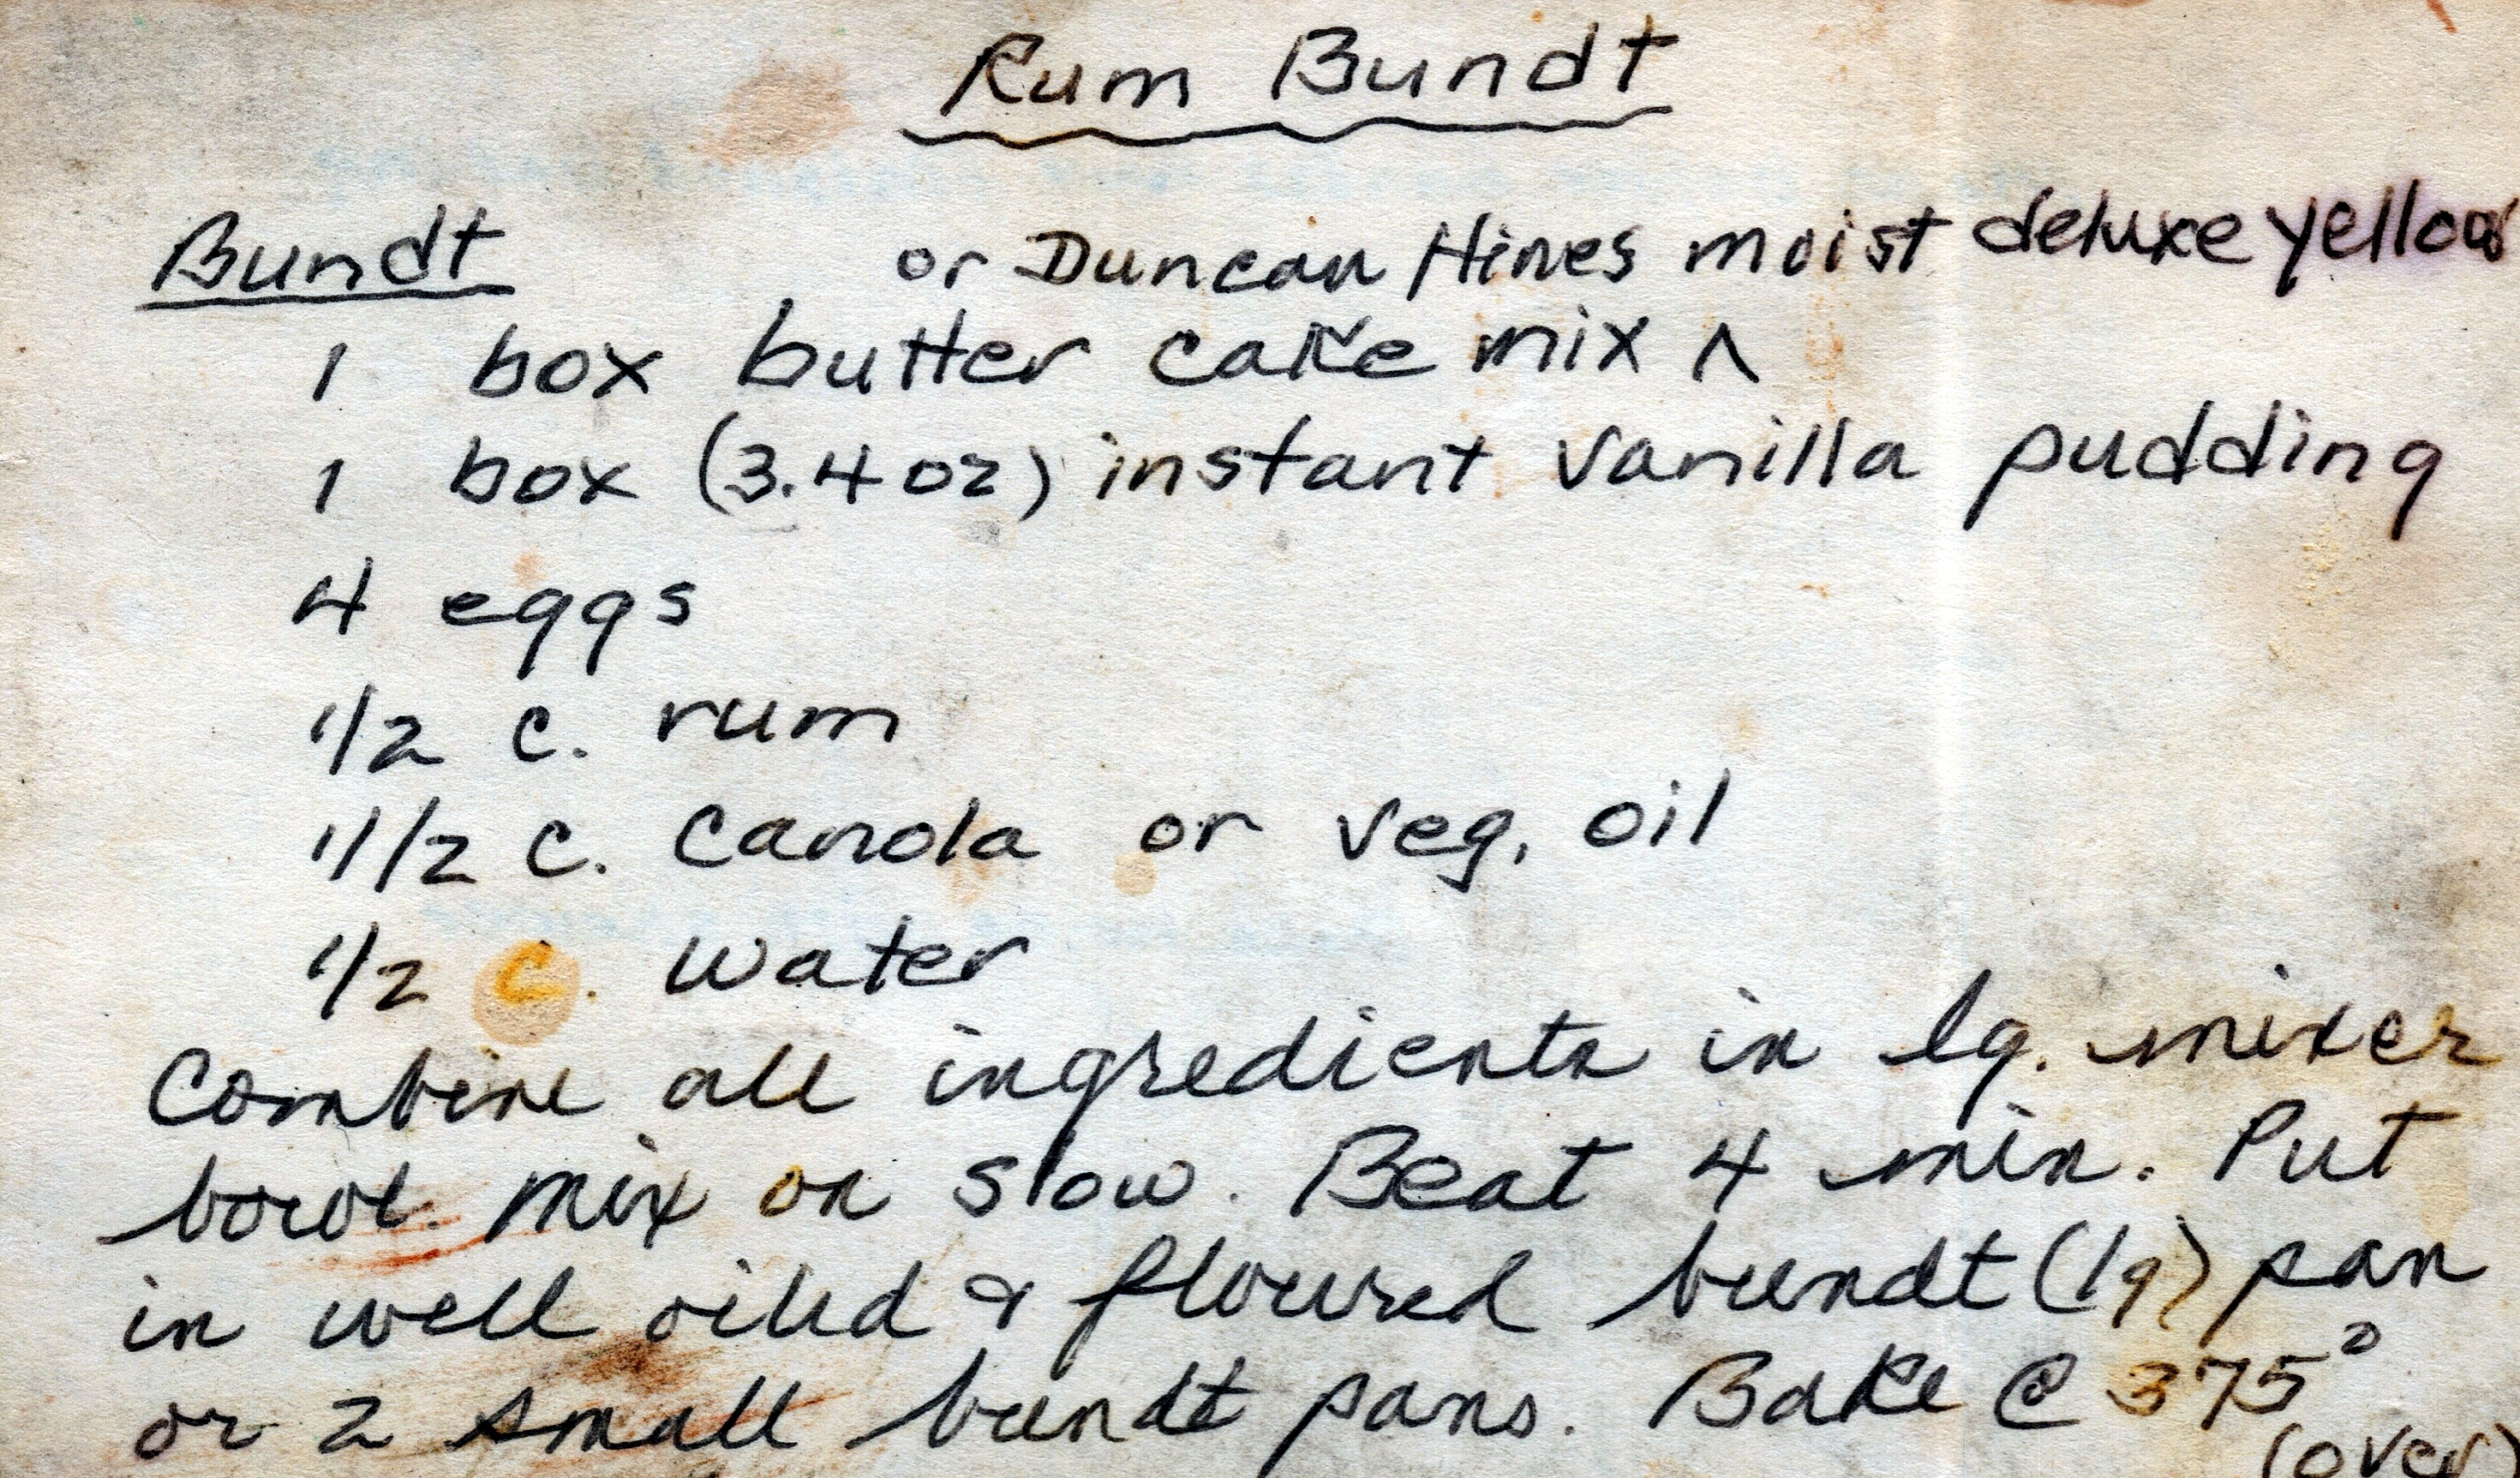 Rum Bundt
Bundt
or Duncan Hines moist deluxe yellow
1 box butter cake mix ^
1 box (3.4 oz) instant vanilla pudding
4 eggs
1/2 c. rum
1/2 c. canola or veg. oil
1/2 c. water
Combine all ingredients in lg. mixer
bowl. Mix on slow. Beat 4 min. Put
in well oiled & floured bundt (lg) pan
or 2 small bundt pans. Bake @ 375°
(over)